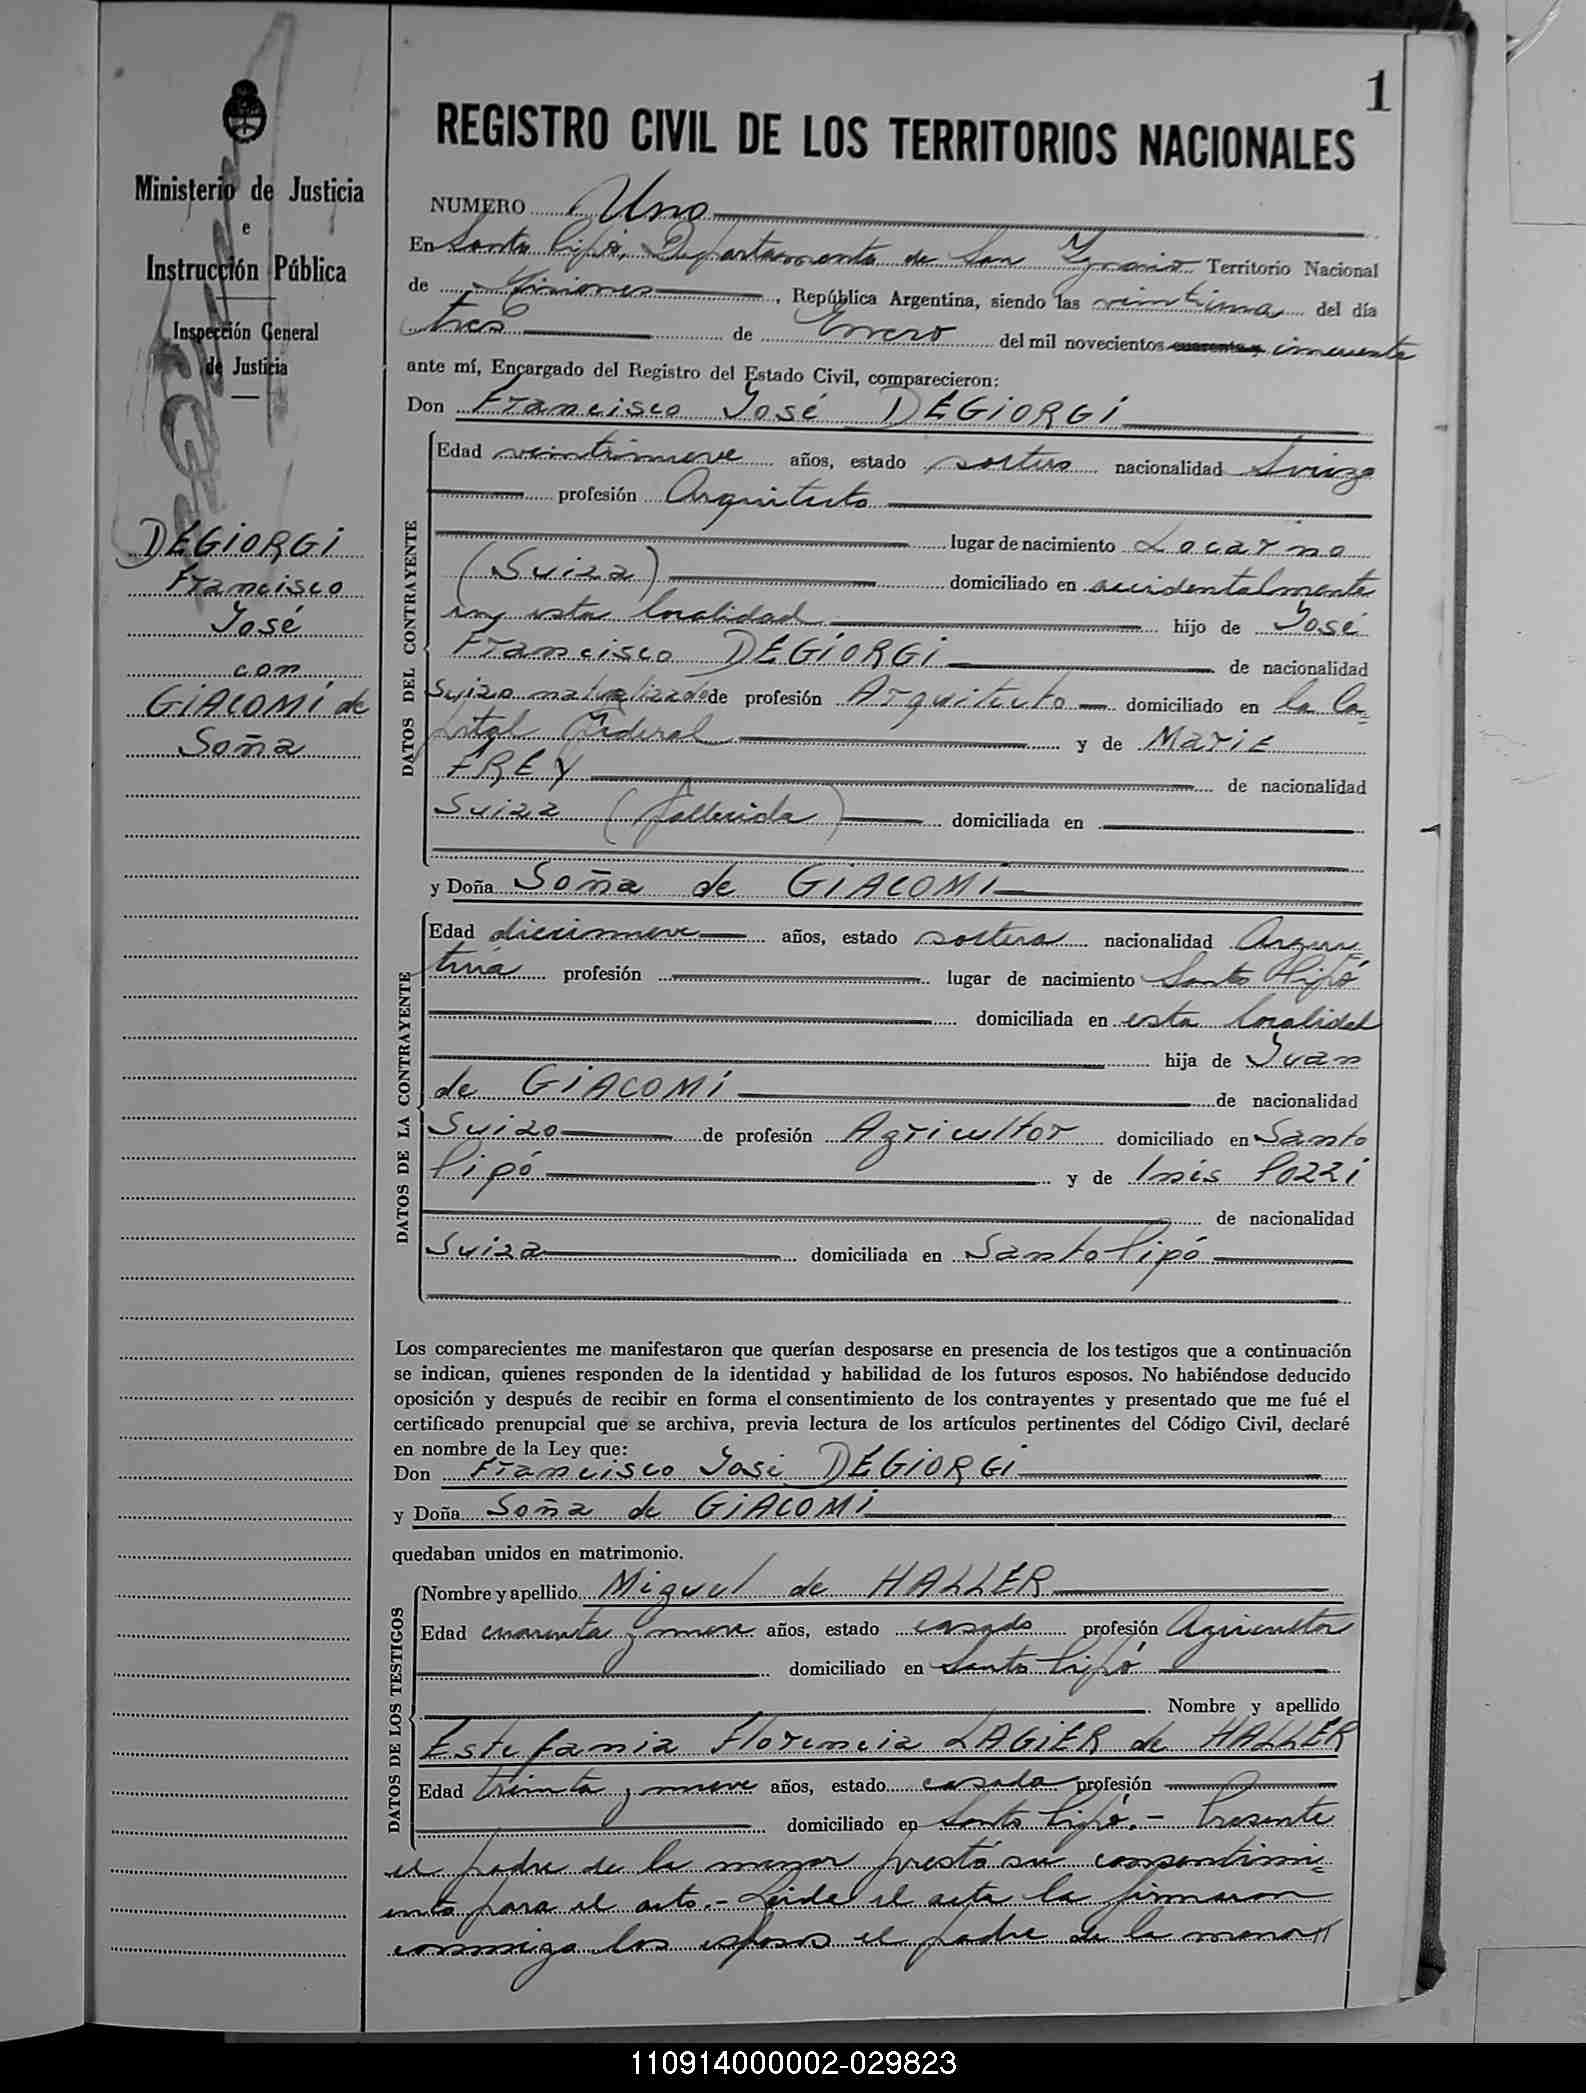 1
REGISTRO CIVIL DE LOS TERRITORIOS NACIONALES
Ministerio de Justicia
e
Instrucción Pública
Inspección General
de Justicia
DEGIORGI
Francisco
José
con
GIACOMI de
Soña
NUMERO Uno
En Santo Pipó, Departamento de San Ygnacio Territorio Nacional
de Misiones, República Argentina, siendo las veintiuna del día
tres de Enero del mil novecientos cuarenta y cincuenta
ante mí, Encargado del Registro del Estado Civil, comparecieron:
Don Francisco José DEGIORGI
DATOS DEL CONTRAYENTE
Edad veintinueve años, estado soltero nacionalidad Suizo
profesión Arquitecto
lugar de nacimiento Locarno
(Suiza) domiciliado en accidentalmente
en esta localidad hijo de José
Francisco DEGIORGI de nacionalidad
Suizo naturalizado de profesión Arquitecto domiciliado en la Ca=
pital Federal y de Marie
FREY de nacionalidad
Suiza (fallecida) domiciliada en
y Doña Soña de GIACOMI
DATOS DE LA CONTRAYENTE
Edad diecinueve años, estado soltera nacionalidad Argen
tina profesión lugar de nacimiento Santo Pipó
domiciliada en esta localidad
hija de Juan
de GIACOMI de nacionalidad
Suizo de profesión Agricultor domiciliado en Santo
Pipó y de Inés Pozzi
de nacionalidad
Suiza domiciliada en Santo Pipó
Los comparecientes me manifestaron que querían desposarse en presencia de los testigos que a continuación
se indican, quienes responden de la identidad y habilidad de los futuros esposos. No habiéndose deducido
oposición y después de recibir en forma el consentimiento de los contrayentes y presentado que me fué el
certificado prenupcial que se archiva, previa lectura de los artículos pertinentes del Código Civil, declaré
en nombre de la Ley que:
Don Francisco José DEGIORGI
y Doña Soña de GIACOMI
quedaban unidos en matrimonio.
DATOS DE LOS TESTIGOS
Nombre y apellido Miguel de HALLER
Edad cuarenta y nueve años, estado casado profesión Agricultor
domiciliado en Santo Pipó
Nombre y apellido
Estefania Florencia LAGIER de HALLER
Edad treinta y nueve años, estado casada profesión
domiciliado en Santo Pipó.- Presente
el padre de la menor prestó su consentimi=
ento para el acto.- Leída el acta la firmaron
conmigo los esposos el padre de la menor
110914000002-029823